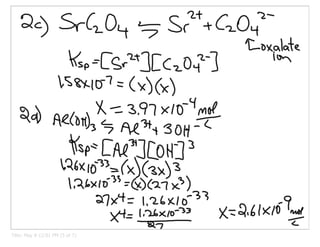 2c) SrC₂O₄ ⇋ Sr²⁺ + C₂O₄²⁻
oxalate
ion
Ksp = [Sr²⁺][C₂O₄²⁻]
1.58x10⁻⁷ = (x)(x)
X = 3.97x10⁻⁴ mol/L
2d) Al(OH)₃ ⇋ Al³⁺ + 3OH⁻
Ksp = [Al³⁺][OH⁻]³
1.26x10⁻³³ = (x)(3x)³
1.26x10⁻³³ = (x)(27x³)
27x⁴ = 1.26x10⁻³³
x⁴ = 1.26x10⁻³³/27
X = 2.61x10⁻⁹ mol/L